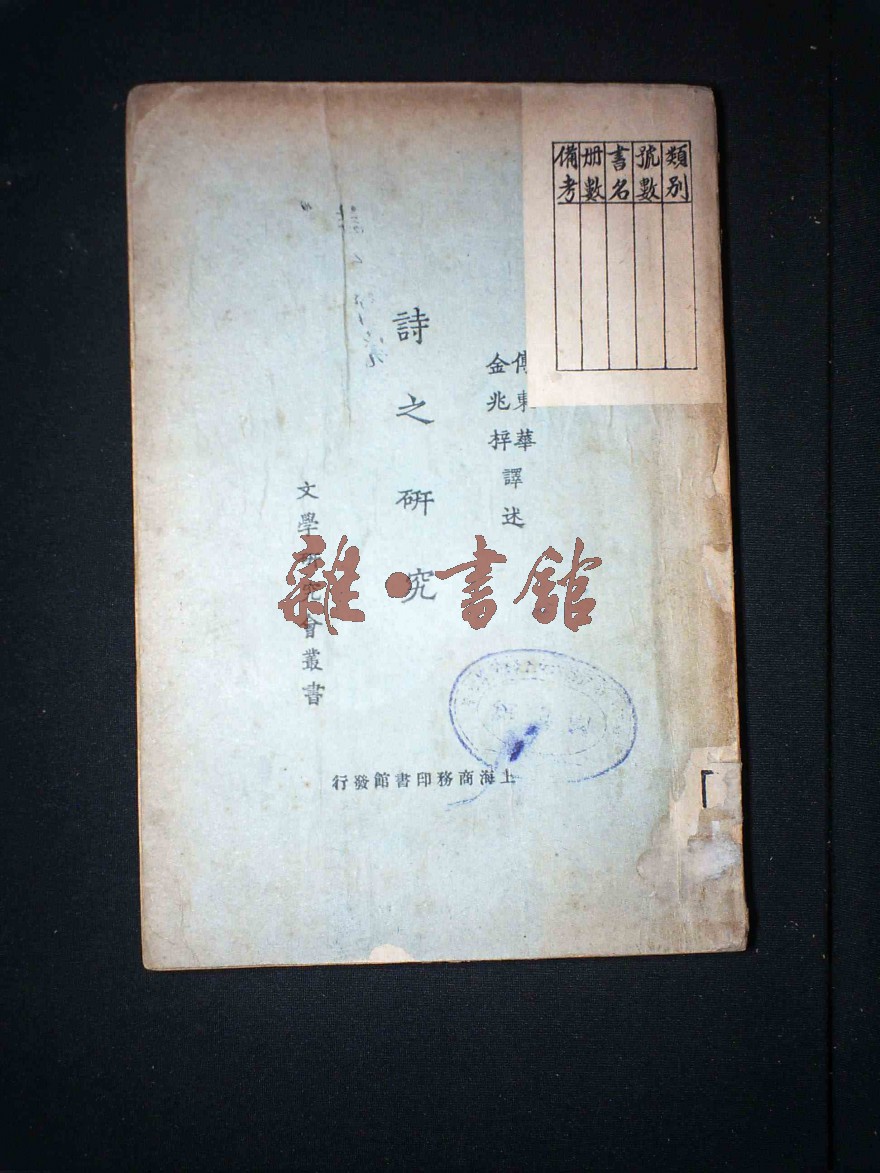 類別
號數
書名
册數
備考
傅東華
金兆梓
譯述
詩之研究
文學研究會叢書
上海商務印書館發行
雜·書館